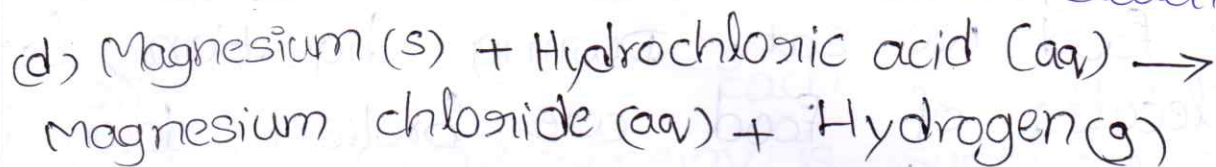 (d) Magnesium (s) + Hydrochloric acid (aq) →
Magnesium chloride (aq) + Hydrogen (g)